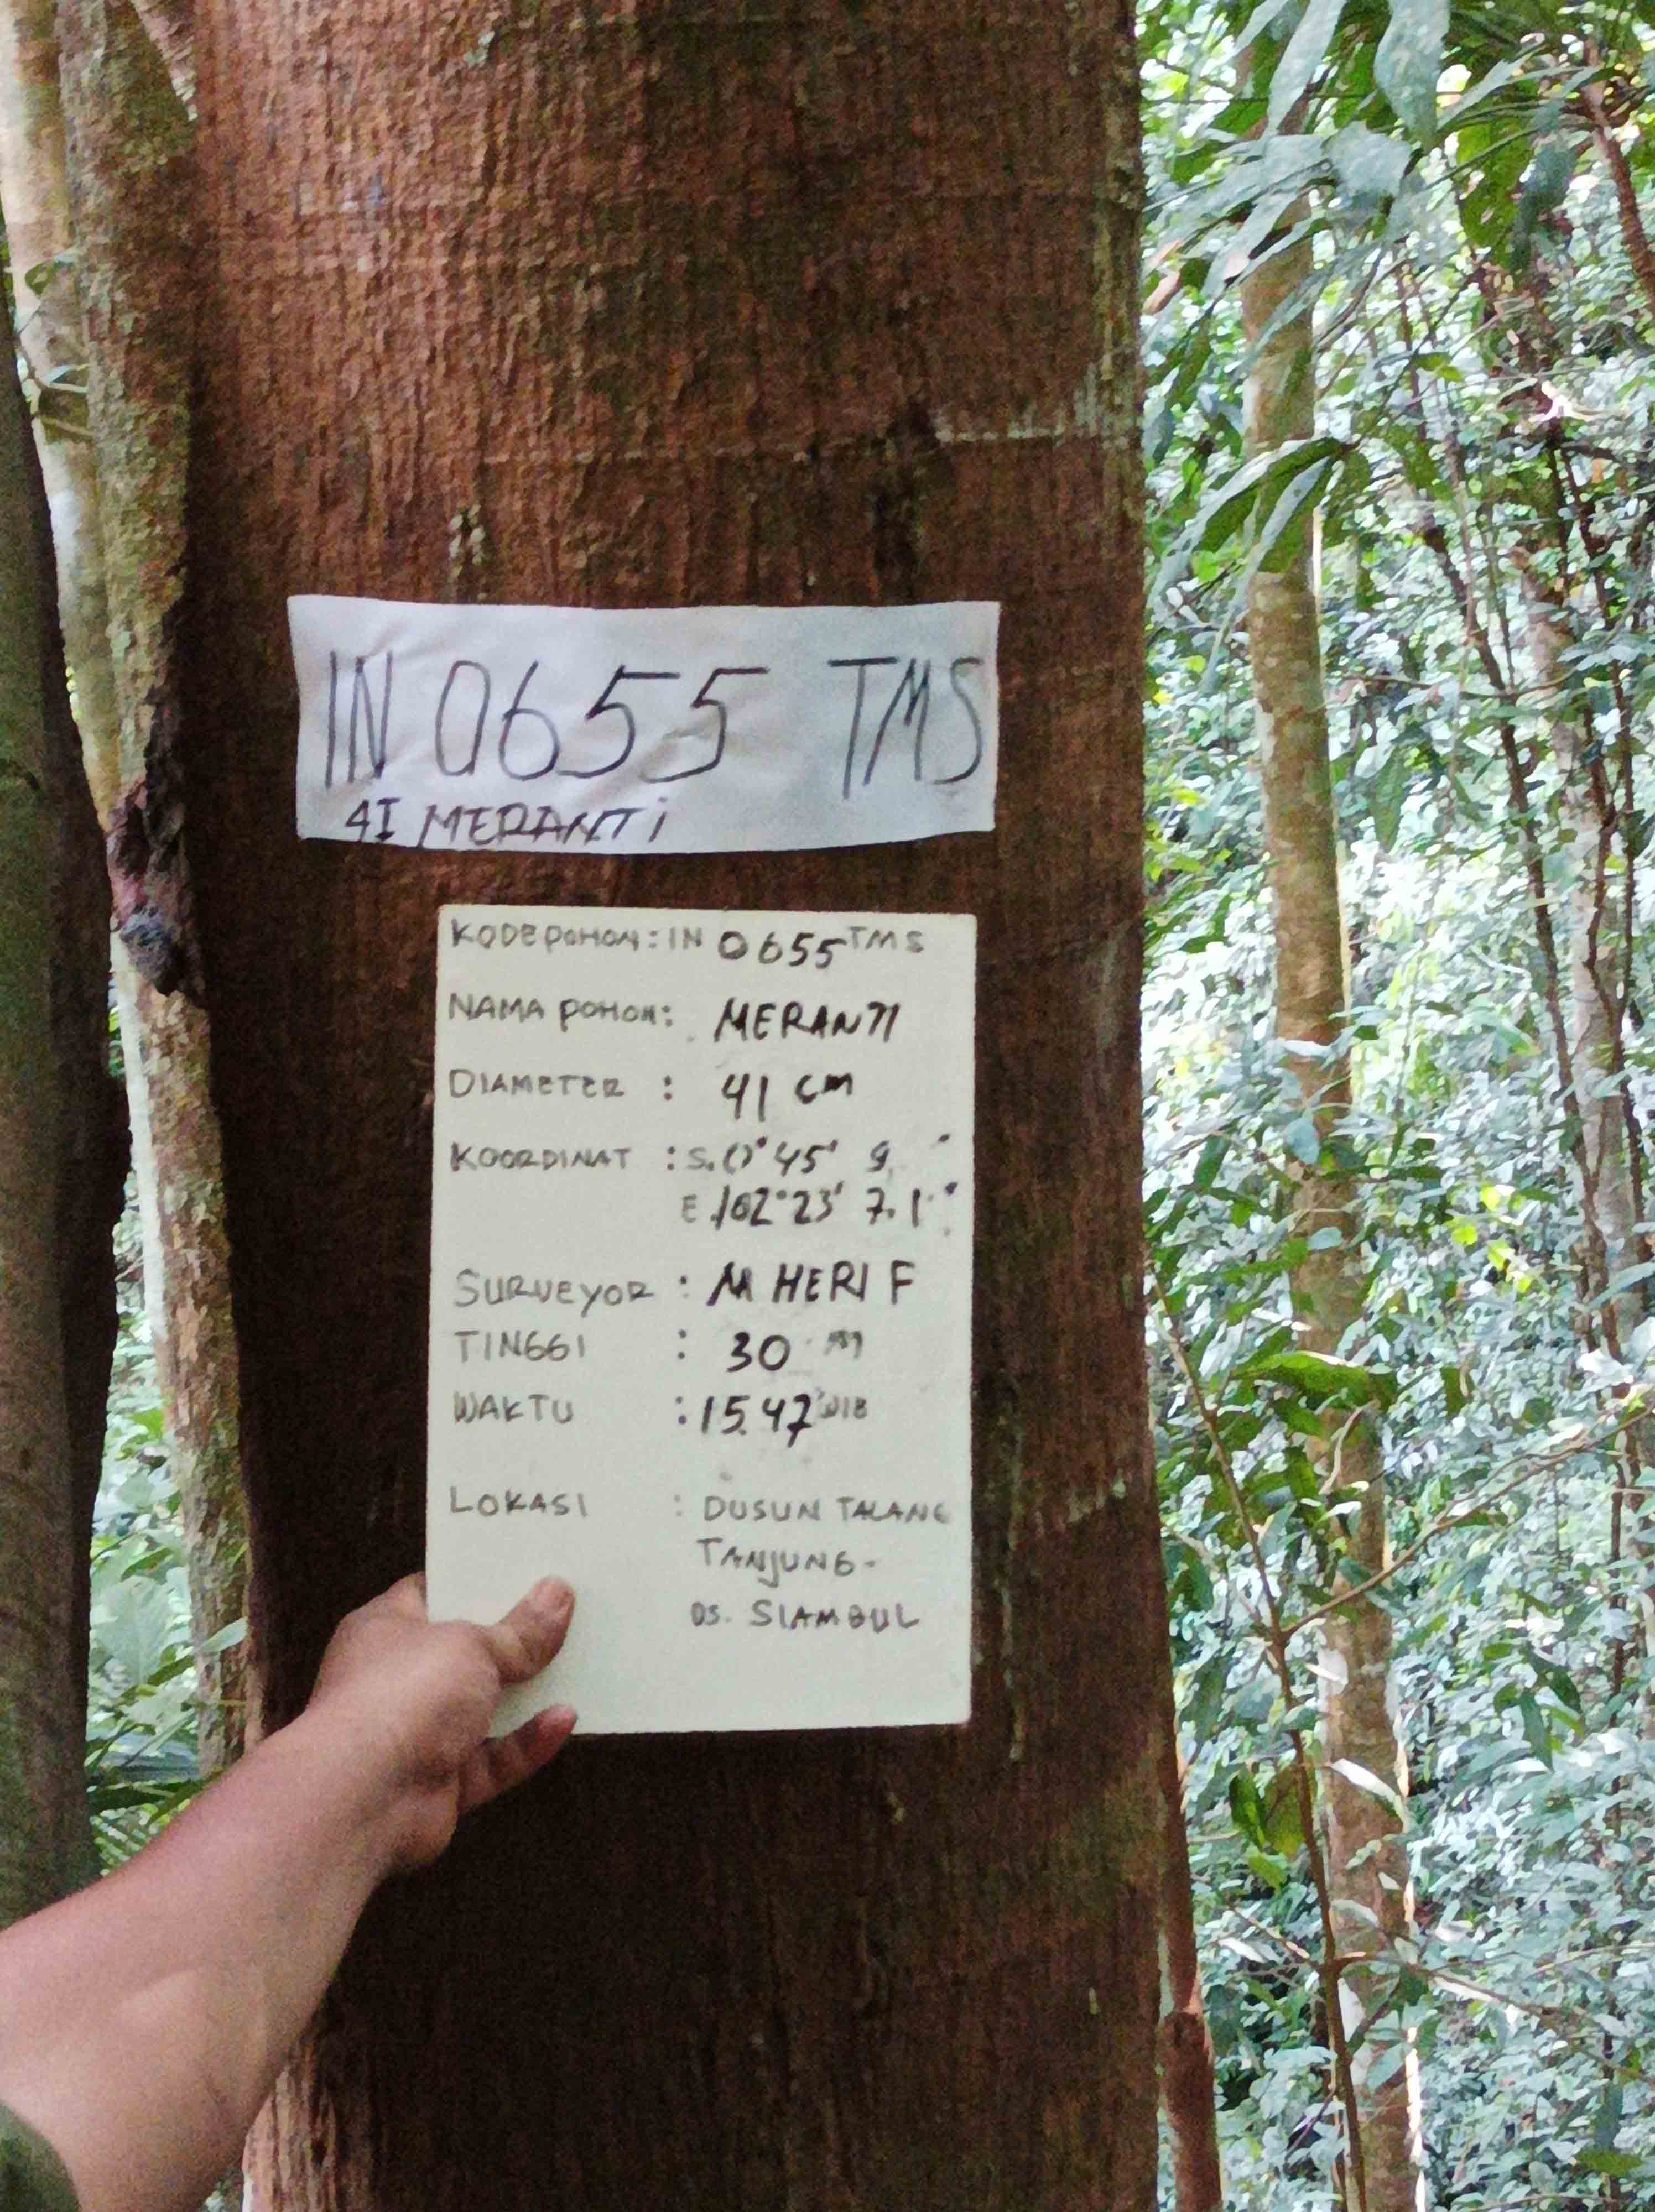 IN 0655 TMS
41 MERANTi
KODE POHON : IN 0655 TMS
NAMA POHON : MERANTI
DIAMETER : 41 cm
KOORDINAT : S. 0° 45' 9. "
E. 102° 23' 7.1"
SURVEYOR : M HERI F
TINGGI : 30 M
WAKTU : 15.47 WIB
LOKASI : DUSUN TALANG
TANJUNG -
DS. SIAMBUL